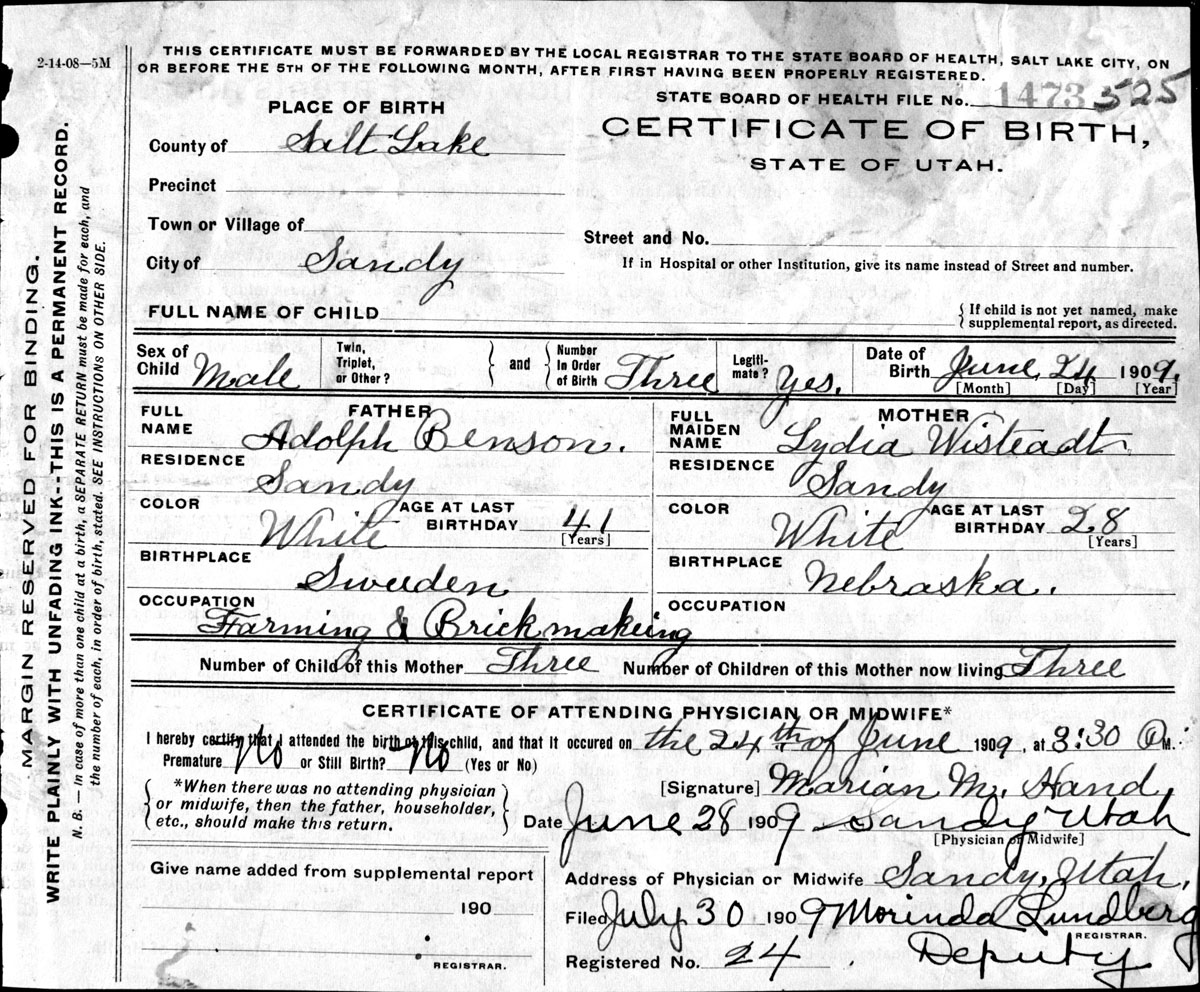 2-14-08—5M
THIS CERTIFICATE MUST BE FORWARDED BY THE LOCAL REGISTRAR TO THE STATE BOARD OF HEALTH, SALT LAKE CITY, ON
OR BEFORE THE 5TH OF THE FOLLOWING MONTH, AFTER FIRST HAVING BEEN PROPERLY REGISTERED.
STATE BOARD OF HEALTH FILE No. 1473 525
PLACE OF BIRTH
CERTIFICATE OF BIRTH,
STATE OF UTAH.
County of Salt Lake
Precinct
Town or Village of
Street and No.
City of Sandy
If in Hospital or other Institution, give its name instead of Street and number.
FULL NAME OF CHILD { If child is not yet named, make
supplemental report, as directed.
Sex of Child Male Twin, Triplet, or Other? } and { Number In Order of Birth Three Legiti-mate? Yes. Date of Birth June 24 1909.
[Month] [Day] [Year]
FATHER
FULL NAME Adolph Benson.
RESIDENCE Sandy
COLOR White AGE AT LAST BIRTHDAY 41 [Years]
BIRTHPLACE Sweden
OCCUPATION Farming & Brickmakeing
MOTHER
FULL MAIDEN NAME Lydia Wisteadt
RESIDENCE Sandy
COLOR White AGE AT LAST BIRTHDAY 28 [Years]
BIRTHPLACE Nebraska.
OCCUPATION
Number of Child of this Mother Three Number of Children of this Mother now living Three
CERTIFICATE OF ATTENDING PHYSICIAN OR MIDWIFE*
I hereby certify that I attended the birth of this child, and that it occured on the 24th of June 1909, at 3:30 A M.
Premature No or Still Birth? No (Yes or No)
[Signature] Marian M. Hand
{ *When there was no attending physician
or midwife, then the father, householder,
etc., should make this return. }
Date June 28 1909 Sandy Utah
[Physician or Midwife]
Give name added from supplemental report
190
REGISTRAR.
Address of Physician or Midwife Sandy, Utah,
Filed July 30 1909 Morinda Lundberg
REGISTRAR.
Registered No. 24 Deputy
MARGIN RESERVED FOR BINDING.
WRITE PLAINLY WITH UNFADING INK--THIS IS A PERMANENT RECORD.
N. B. — In case of more than one child at a birth, a SEPARATE RETURN must be made for each, and
the number of each, in order of birth, stated. SEE INSTRUCTIONS ON OTHER SIDE.